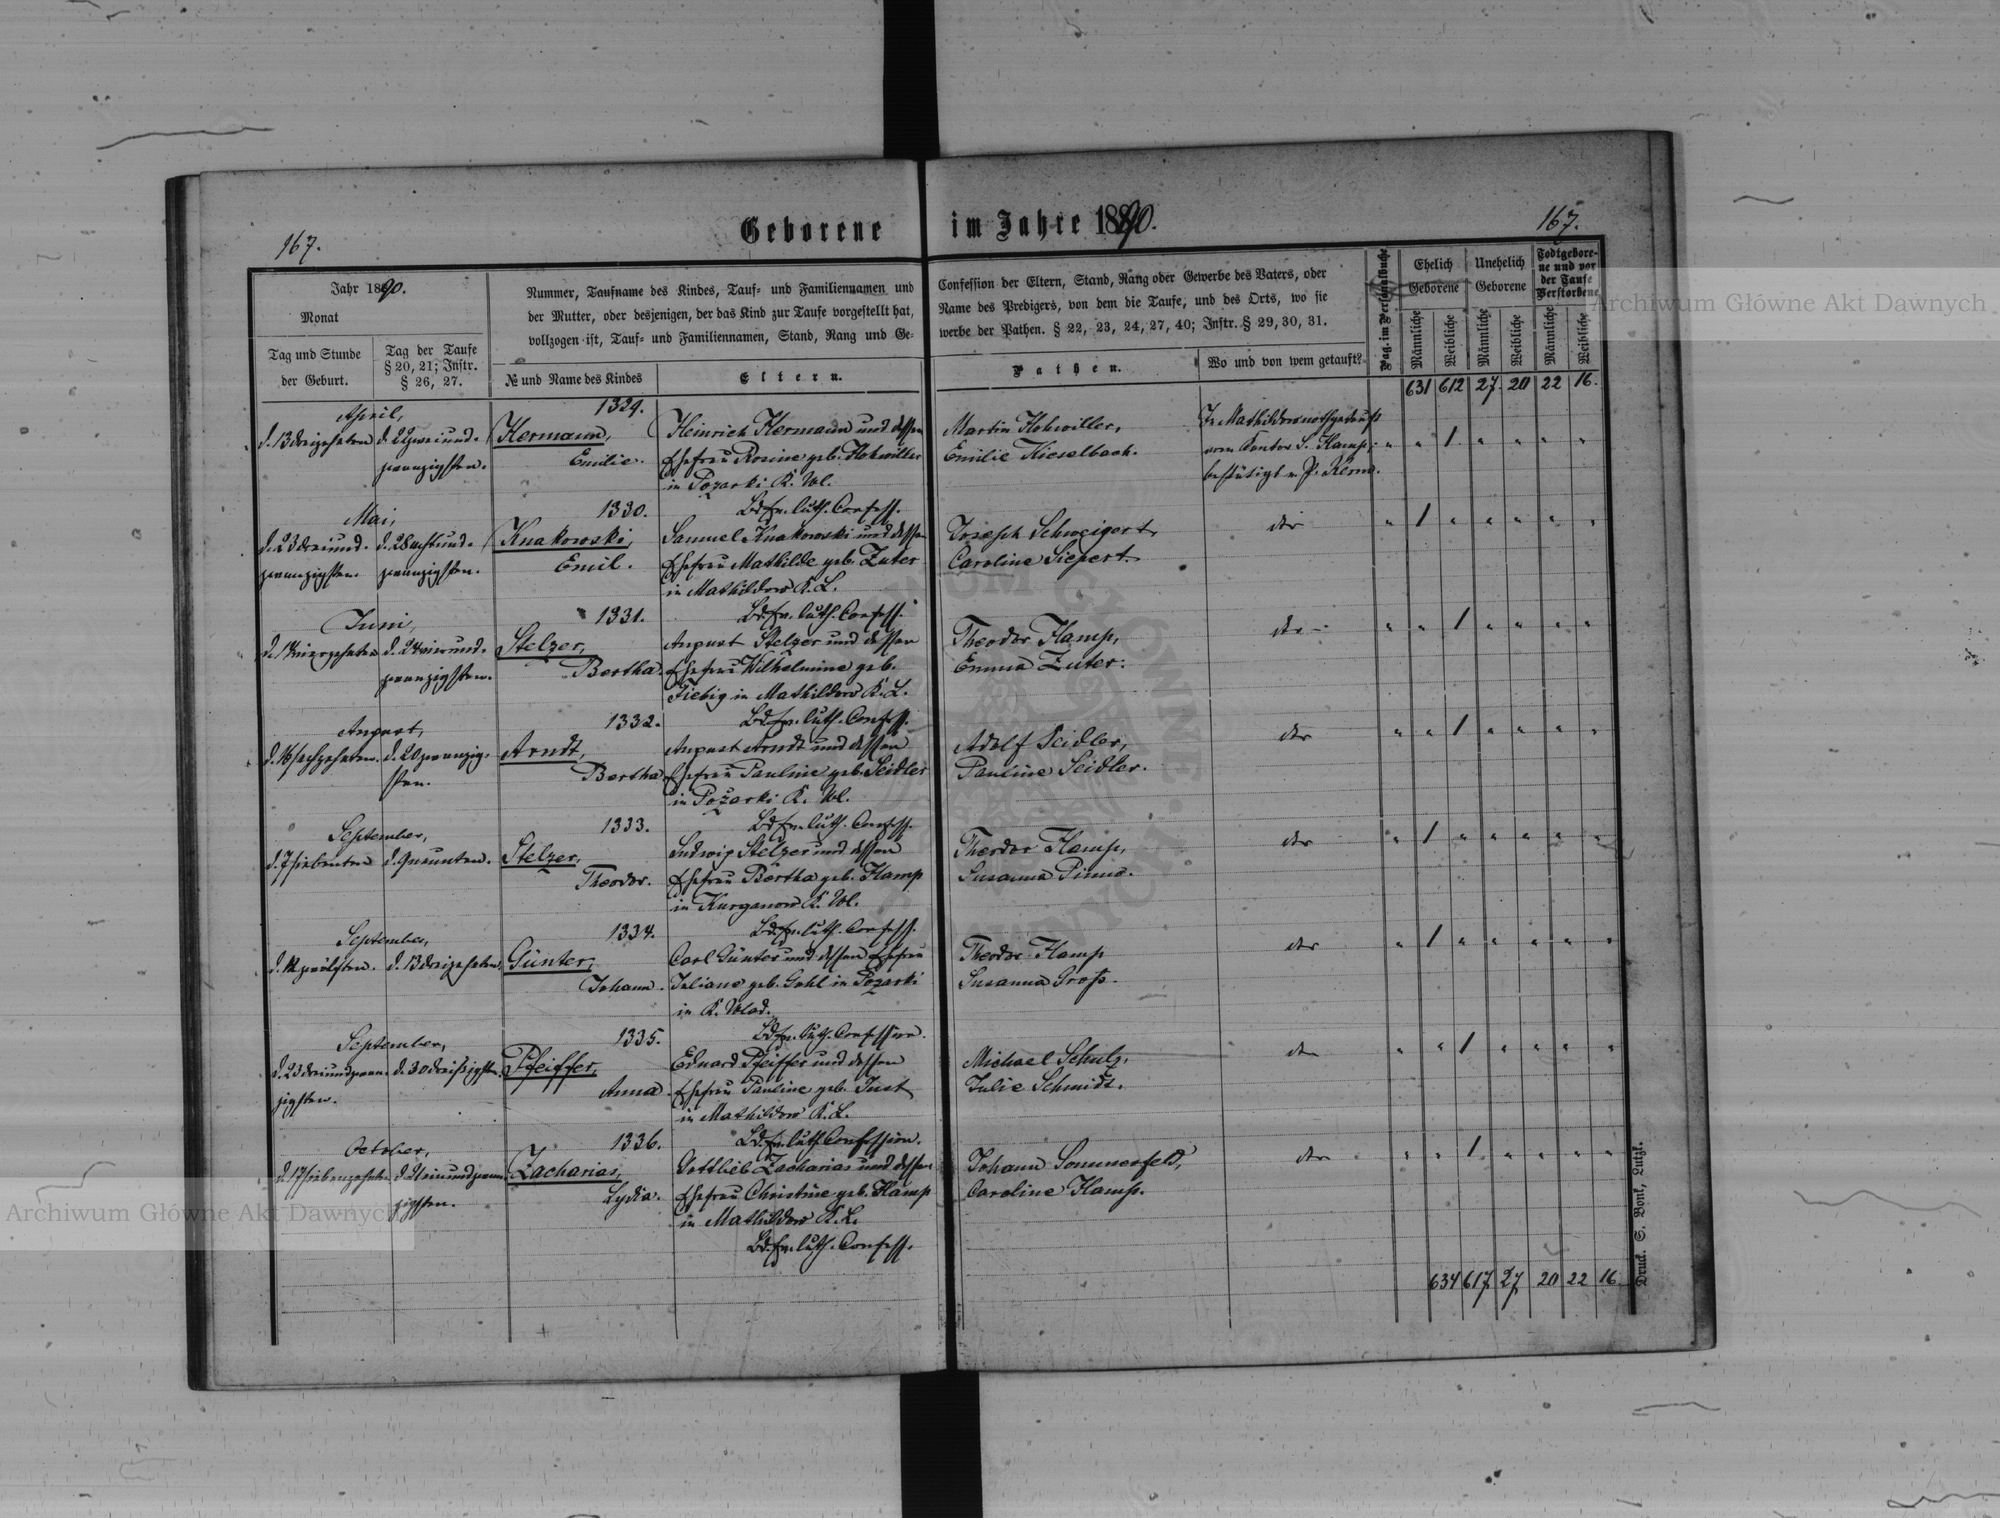 Geborene im Jahre 1890.
167.
167.
Jahr 1890.
Monat
Tag und Stunde
der Geburt.
Tag der Taufe
§ 20, 21; Instr.
§ 26, 27.
Nummer, Taufname des Kindes, Tauf- und Familiennamen und
der Mutter, oder desjenigen, der das Kind zur Taufe vorgestellt hat,
vollzogen ist, Tauf- und Familiennamen, Stand, Rang und Ge-
№ und Name des Kindes
Eltern.
Confession der Eltern, Stand, Rang oder Gewerbe des Vaters, oder
Name des Predigers, von dem die Taufe, und des Orts, wo sie
werbe der Pathen. § 22, 23, 24, 27, 40; Instr. § 29, 30, 31.
Pathen.
Wo und von wem getauft?
Pag. im Personalbuche
Ehelich
Geborene
Unehelich
Geborene
Todtgebore-
ne und vor
der Taufe
Verstorbene
Männliche
Weibliche
Männliche
Weibliche
Männliche
Weibliche
631 612 27 20 22 16.
April,
d. 13 dreizehnten
d. 22 zwei und-
zwanzigsten.
1329.
Hermann,
Emilie.
Heinrich Hermann und dessen
Ehefrau Rosine geb. Hohwiller
in Pożarki K. Wl.
Bd. ev. luth. Confess.
Martin Hohwiller,
Emilie Kieselbach.
In Mathildow nothgetauft
vom Kantor S. Kamp;
bestätigt v. P. Kerm.
" " 1 " " " "
Mai,
d. 23 drei und-
zwanzigsten.
d. 28 acht und-
zwanzigsten.
1330.
Knakowski,
Emil.
Samuel Knakowski und dessen
Ehefrau Mathilde geb. Zuter
in Mathildow K. L.
Bd. ev. luth. Confess.
Joseph Schweigert,
Caroline Siepert.
dto
" 1 " " " " "
Juni,
d. 14 vierzehnten
d. 24 vier und-
zwanzigsten.
1331.
Stelzer,
Bertha.
August Stelzer und dessen
Ehefrau Wilhelmine geb.
Fiebig in Mathildow K. L.
Bd. ev. luth. Confess.
Theodor Kamp,
Emma Zuter.
dto
" " 1 " " " "
August,
d. 16 sechzehnten.
d. 20 zwanzig-
sten.
1332.
Arndt,
Bertha.
August Arndt und dessen
Ehefrau Pauline geb. Seidler
in Pożarki K. Wl.
Bd. ev. luth. Confess.
Adolf Seidler,
Pauline Seidler.
dto
" " 1 " " " "
September,
d. 7 siebenten
d. 9 neunten.
1333.
Stelzer,
Theodor.
Ludwig Stelzer und dessen
Ehefrau Bertha geb. Kamp
in Kurganow K. Wl.
Bd. ev. luth. Confess.
Theodor Kamp,
Susanna
dto
" 1 " " " " "
September,
d. 12 zwölften.
d. 13 dreizehnten.
1334.
Günter,
Johann.
Carl Günter und dessen Ehefrau
Juliane geb. Gohl in Pożarki
in K. Wlad.
Bd. ev. luth. Confession.
Theodor Kamp
Susanna Groß.
dto
" 1 " " " " "
September,
d. 23 drei und zwan-
zigsten.
d. 30 dreißigsten.
1335.
Pfeiffer,
Anna.
Eduard Pfeiffer und dessen
Ehefrau Pauline geb. Just
in Mathildow K. L.
Bd. ev. luth. Confession.
Michael Schulz,
Julie Schmidt.
dto
" " 1 " " " "
October,
d. 17 siebenzehnten
d. 21 ein und zwan-
zigsten.
1336.
Zacharias,
Lydia.
Gottlieb Zacharias und dessen
Ehefrau Christine geb. Kamp
in Mathildow K. L.
Bd. ev. luth. Confess.
Johann Sommerfeld,
Caroline Kamp.
dto
" " 1 " " " "
634 617 27 20 22 16
Druck. S. Bonk, Lutzk.
Archiwum Główne Akt Dawnych
Archiwum Główne Akt Dawnych